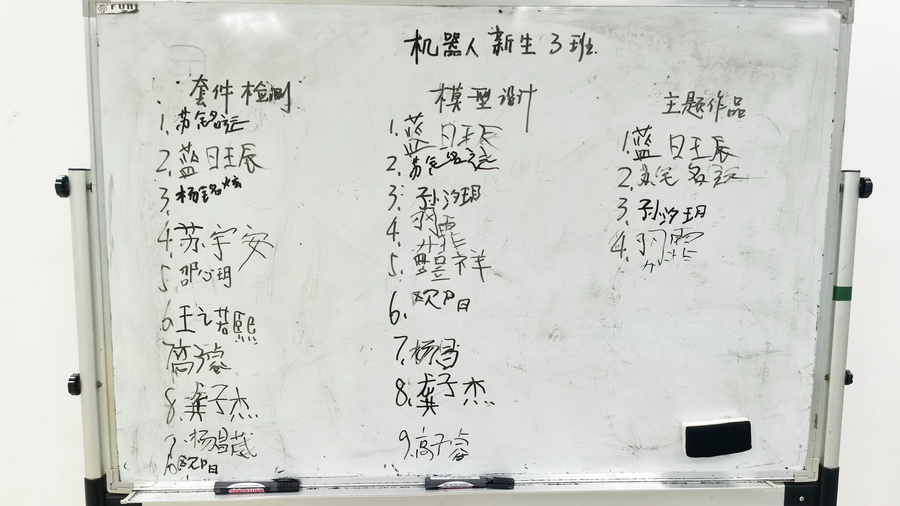 机器人新生3班
套件检测
1.苏铭
2.蓝日王辰
3.杨铭炫
4.苏宇安
5.邵 玥
6.王 若熙
高子睿
8.龚子杰
杨昌葳
欧阳日
模型设计
1.蓝日王辰
2.苏铭
3.孙汐玥
4.
5.豐祥
6.欧阳日
7.杨昌
8.龚子杰
9.高子睿
主题作品
1.蓝日王辰
2.苏
3.孙汐玥
4.